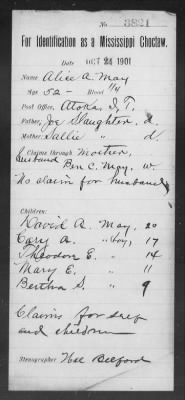 No. 3821
For Identification as a Mississippi Choctaw.
Date OCT 24 1901
Name Alice A. May
Age 52 - Blood 1/4
Post Office, Atoka, I, T.
Father, Joe Slaughter, d.
Mother, Sallie " d.
Claims through Mother,
Husband Ben C. May, w.
No claim for husband
Children:
David A. May, 20
Cary A. " boy, 17
Theodore E. " 14
Mary E. " 11
Bertha S. " 9
Claims for self
and children
Stenographer Hal Belford